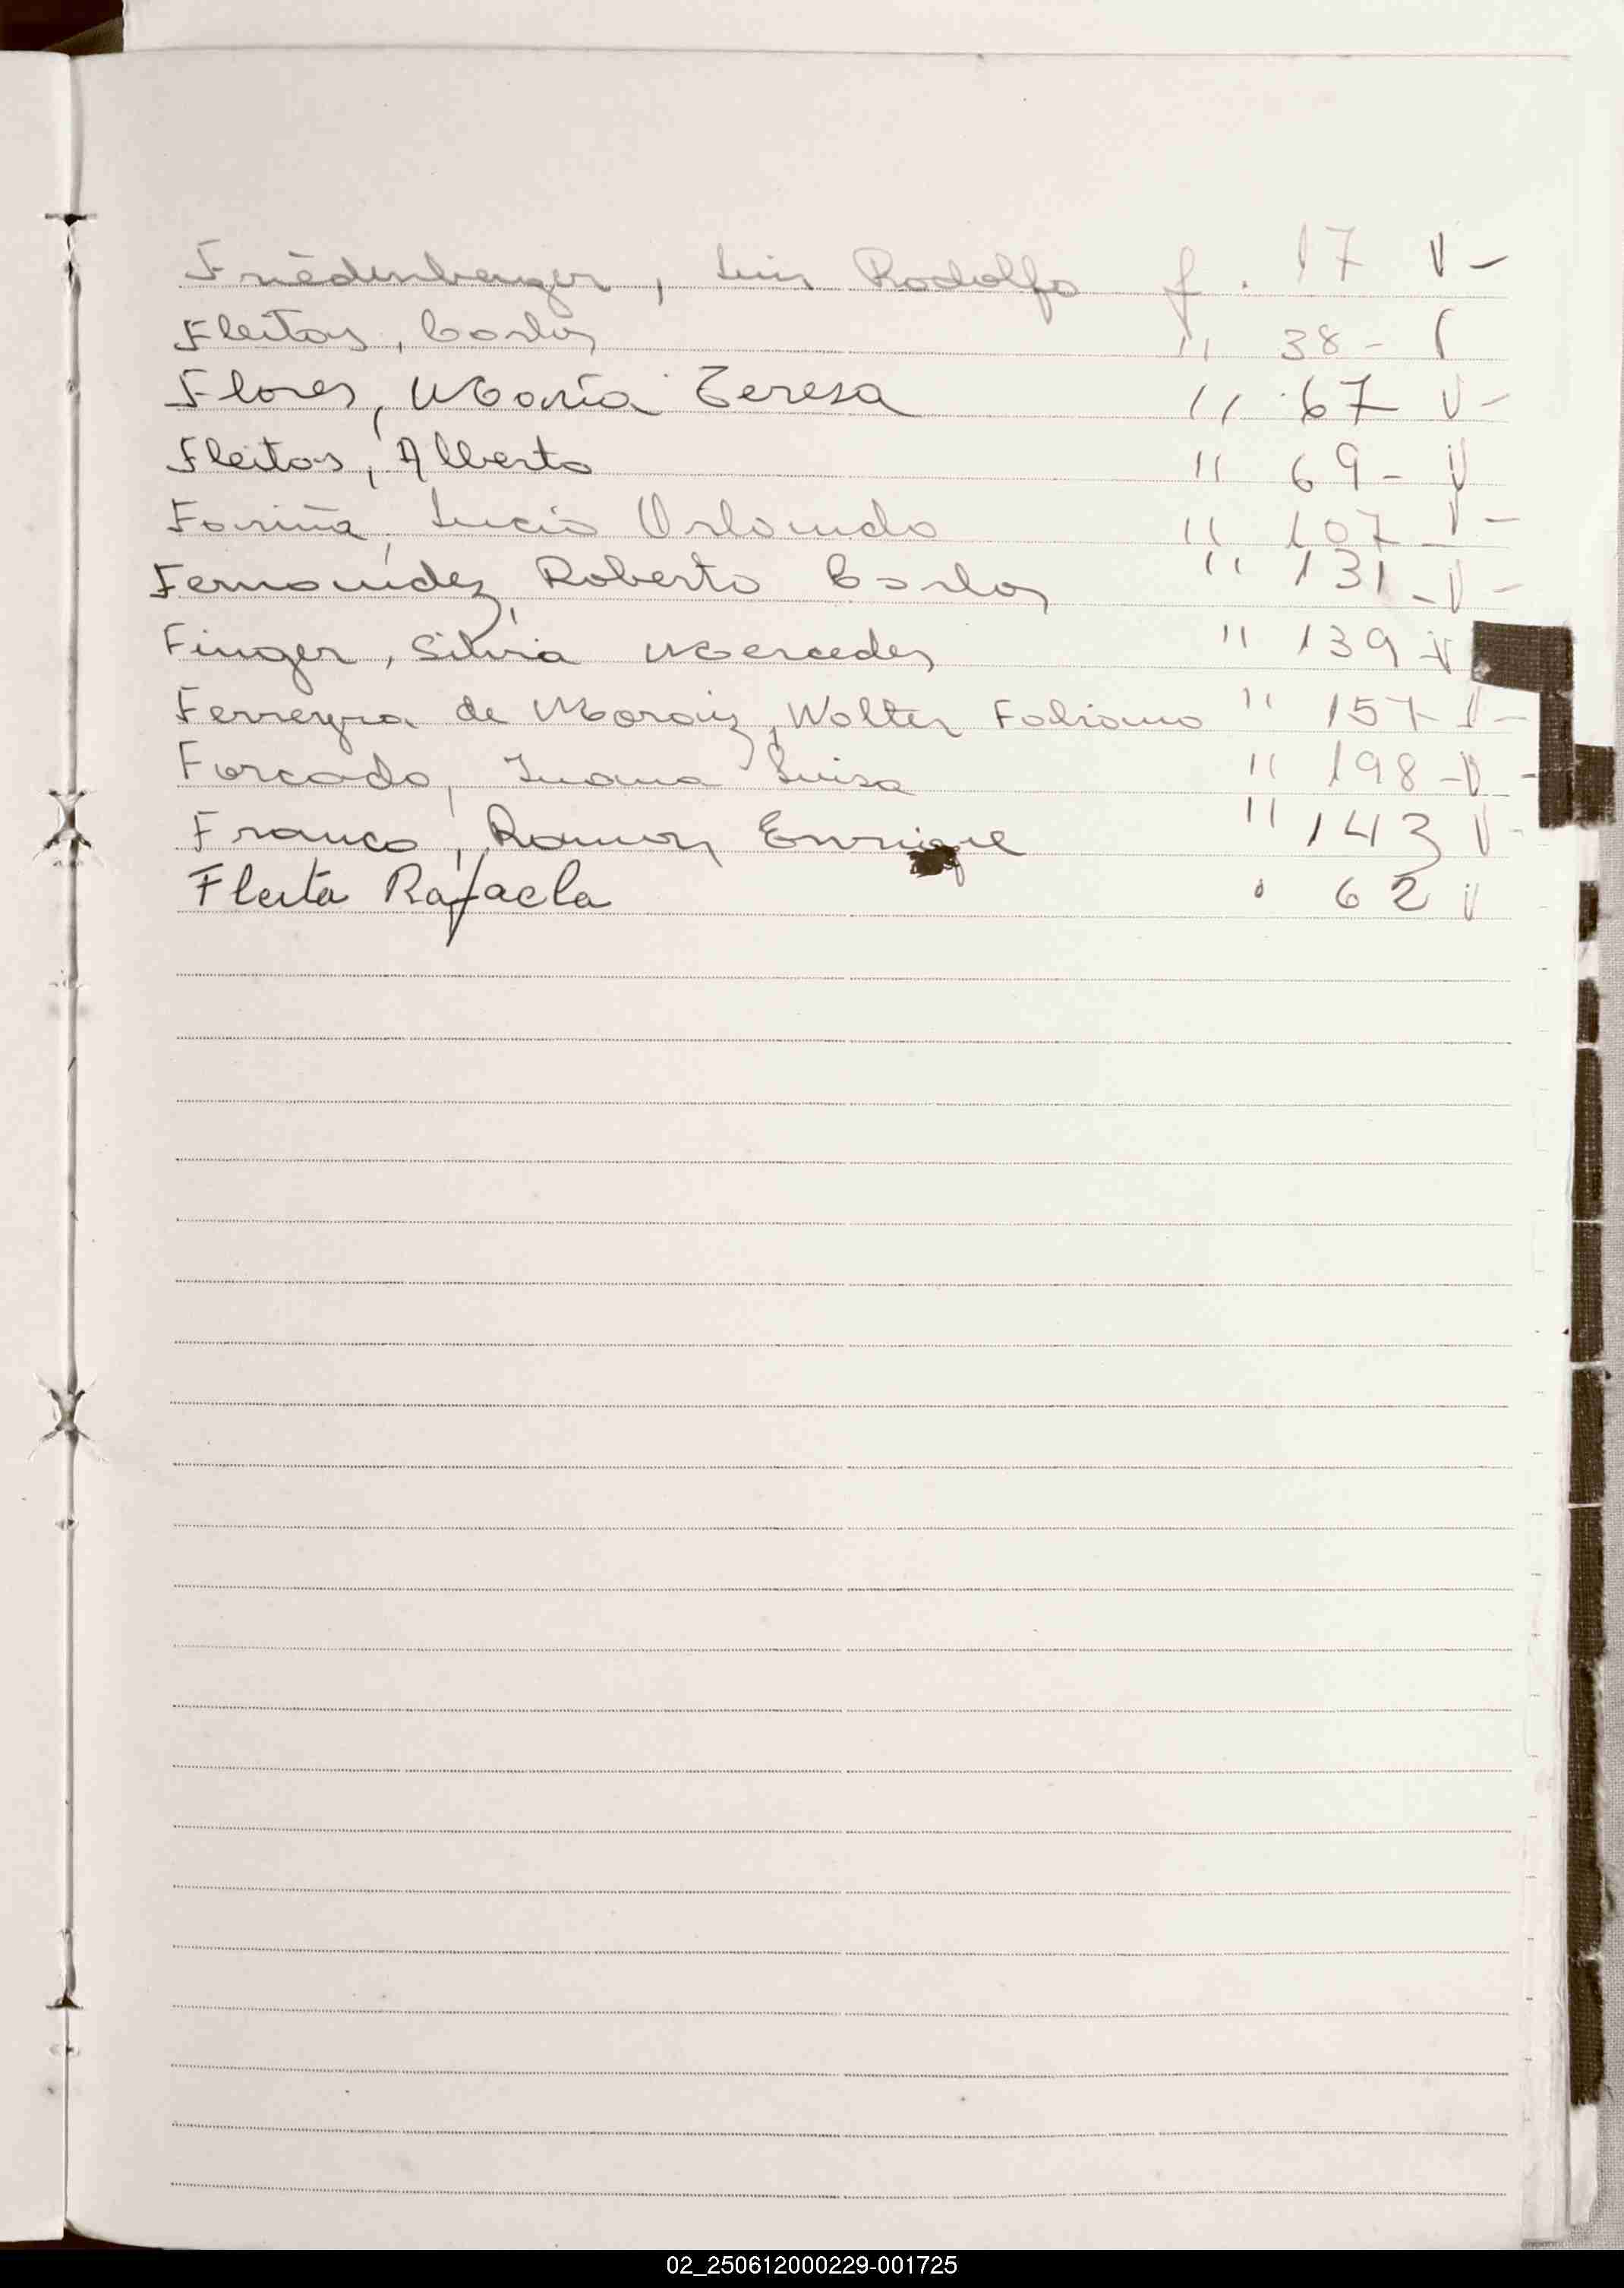 Friedenberger, Luis Rodolfo f. 17 V -
Fleitas, Carlos " 38 -
Flores, María Teresa " 67 V -
Fleitas, Alberto " 69 - V
Fariña, Lucio Orlando " 107 V -
Fernandez, Roberto Carlos " 131 - V -
Finger, Silvia Mercedes " 139 V
Ferreyra de Moraiz, Walter Fabiano " 157 V -
Forcado, Juana Luisa " 198 - V -
Franco, Ramon Enrique " 143 V -
Fleita Rafaela " 62 V
02_250612000229-001725